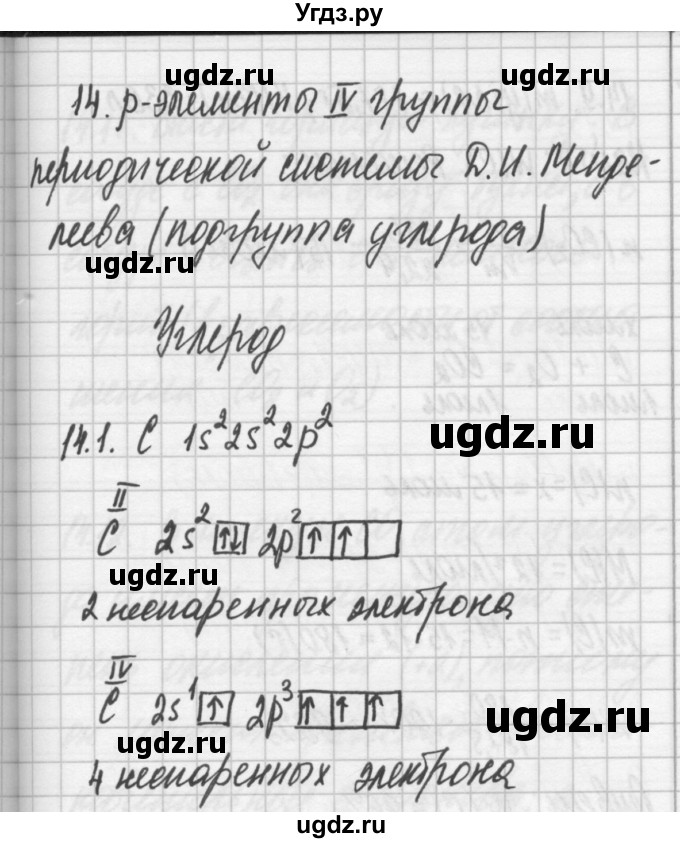 Угдз.ру
ugdz.ru
14. p-элементы IV группы
ugdz.ru
периодической системы Д.И. Менде-
леева (подгруппа углерода)
ugdz.ru
Углерод
14.1. C 1s² 2s² 2p²
ugdz.ru
II
C 2s² ↑↓ 2p² ↑ ↑
ugdz.ru
2 неспаренных электрона
IV
C 2s¹ ↑ 2p³ ↑ ↑ ↑
ugdz.ru
ugdz.ru
4 неспаренных электрона
ugdz.ru
ugdz.ru